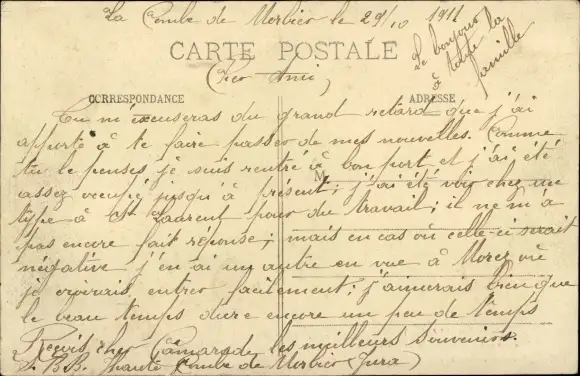 La Combe de Morbier le 29/10 1911
Le bonjour
à toute la
famille
CARTE POSTALE
Cher Ami,
CORRESPONDANCE
ADRESSE
Tu m'excuseras du grand retard que j'ai
apporté à te faire passer de mes nouvelles. Comme
tu le penses, je suis rentré à bon port et j'ai été
assez occupé jusqu'à présent; j'ai été voir chez un
M
type à St Laurent pour du travail; il ne m'a
pas encore fait réponse; mais en cas où celle-ci serait
négative j'en ai un autre en vue à Morez où
je croirais entrer facilement; j'aimerais bien que
le beau temps dure encore un peu de temps
Reçois cher Camarade les meilleurs souvenirs.
Combe de Morbier (Jura)